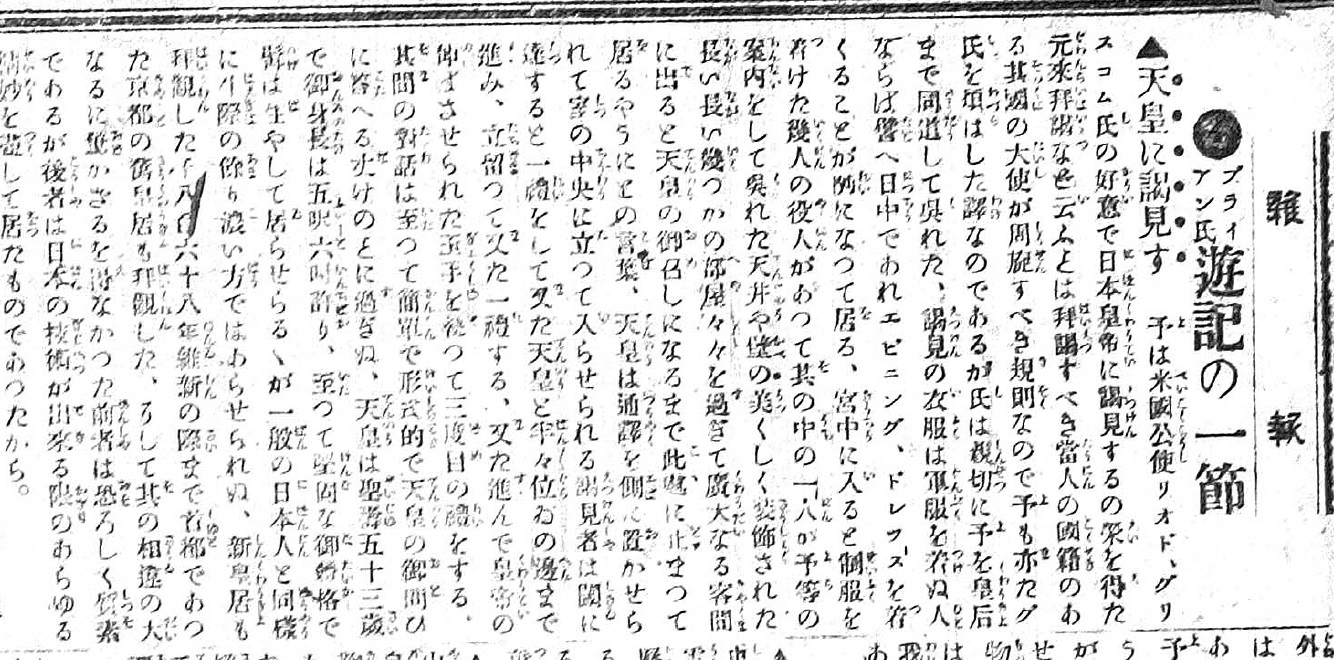 雜報
ブライアン氏遊記の一節
▲天皇に謁見す 予は米國公使リオド、グリ
スコム氏の好意で日本皇帝に謁見するの榮を得た
元來拜謁など云ふとは拜謁すべき當人の國籍のあ
る其國の大使が周旋すべき規則なので予も亦たグ
氏を煩はした譯なのであるが氏は親切に予を皇居
まで同道して呉れた、謁見の衣服は軍服を着ぬ人
ならば譬へ日中であれエビニング、ドレツスを着
くることが例になつて居る、宮中に入ると制服を
着けた幾人の役人があつて其の中の一人が予等の
案内をして呉れた天井や壁の美くしく裝飾された
長い長い幾つかの部屋々々を過ぎて廣大なる客間
に出ると天皇の御召しになるまで此處に止まつて
居るやうにとの言葉、天皇は通譯を側に置かせら
れて室の中央に立つて入らせられる謁見者は閾に
達すると一禮をして又た天皇と半々位ゐの邊まで
進み、立留つて又た一禮する、又た進んで皇帝の
伸ばさせられた玉手を執つて三度目の禮をする、
其間の對話は至つて簡單で形式的で天皇の御問ひ
に答へる丈けのとに過ぎぬ、天皇は聖壽五十三歲
で御身長は五呎六吋許り、至つて堅固な御體格で
髯は生やして居らせらるゝが一般の日本人と同樣
に生際の餘り濃い方ではあらせられぬ、新皇居も
拜觀した千八百六十八年維新の際まで首都であつ
た京都の舊皇居も拜觀した、そして其の相違の大
なるに驚かざるを得なかつた前者は恐ろしく質素
であるが後者は日本の技術が出來る限のあらゆる
精妙を盡して居たものであつたから。